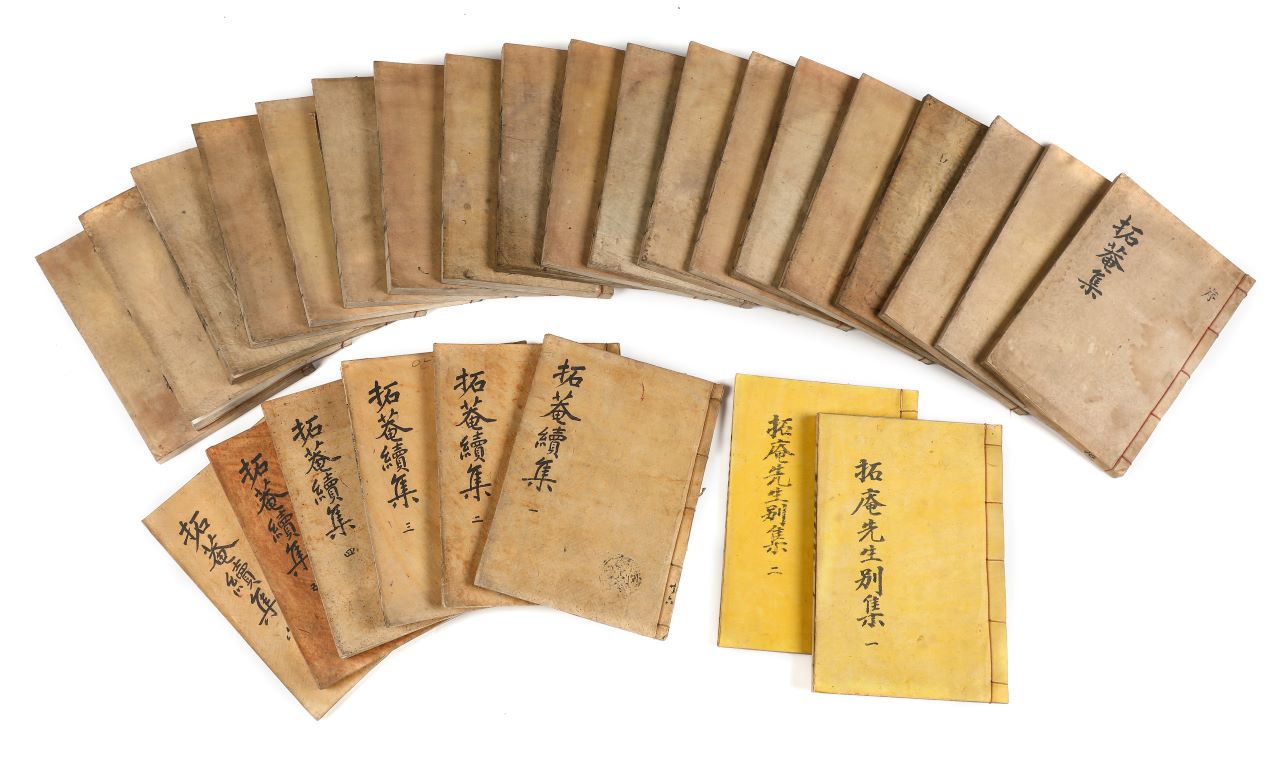 拓菴集
序
拓菴續集
一
拓菴續集
二
拓菴續集
三
拓菴續集
四
拓菴續集
五
拓菴續集
拓庵先生别集
二
拓庵先生别集
一